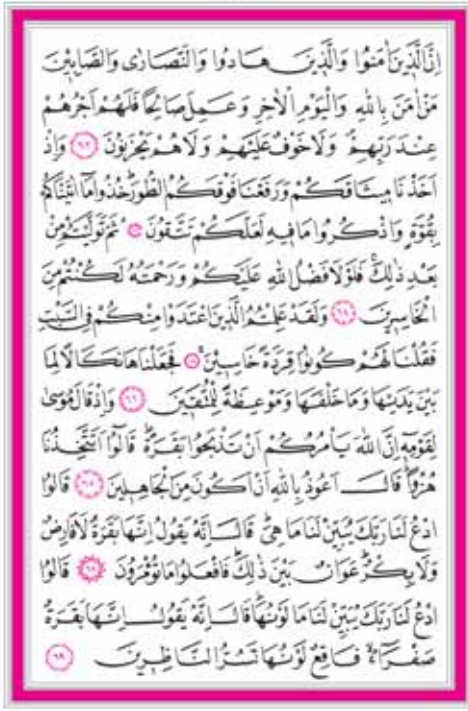 اِنَّ الَّذ۪ينَ اٰمَنُوا وَالَّذ۪ينَ هَادُوا وَالنَّصَارٰى وَالصَّابِـ۪ٔينَ
مَنْ اٰمَنَ بِاللّٰهِ وَالْيَوْمِ الْاٰخِرِ وَعَمِلَ صَالِحًا فَلَهُمْ اَجْرُهُمْ
عِنْدَ رَبِّهِمْۖ وَلَا خَوْفٌ عَلَيْهِمْ وَلَا هُمْ يَحْزَنُونَ ﴿٦٢﴾ وَاِذْ
اَخَذْنَا م۪يثَاقَكُمْ وَرَفَعْنَا فَوْقَكُمُ الطُّورَۜ خُذُوا مَٓا اٰتَيْنَاكُمْ
بِقُوَّةٍ وَاذْكُرُوا مَا ف۪يهِ لَعَلَّكُمْ تَتَّقُونَ ﴿٦٣﴾ ثُمَّ تَوَلَّيْتُمْ مِنْ
بَعْدِ ذٰلِكَۚ فَلَوْلَا فَضْلُ اللّٰهِ عَلَيْكُمْ وَرَحْمَتُهُ لَكُنْتُمْ مِنَ
الْخَاسِر۪ينَ ﴿٦٤﴾ وَلَقَدْ عَلِمْتُمُ الَّذ۪ينَ اعْتَدَوْا مِنْكُمْ فِي السَّبْتِ
فَقُلْنَا لَهُمْ كُونُوا قِرَدَةً خَاسِـ۪ٔينَۚ ﴿٦٥﴾ فَجَعَلْنَاهَا نَكَالًا لِمَا
بَيْنَ يَدَيْهَا وَمَا خَلْفَهَا وَمَوْعِظَةً لِلْمُتَّق۪ينَ ﴿٦٦﴾ وَاِذْ قَالَ مُوسٰى
لِقَوْمِه۪ٓ اِنَّ اللّٰهَ يَأْمُرُكُمْ اَنْ تَذْبَحُوا بَقَرَةًۜ قَالُٓوا اَتَتَّخِذُنَا
هُزُوًاۜ قَالَ اَعُوذُ بِاللّٰهِ اَنْ اَكُونَ مِنَ الْجَاهِل۪ينَ ﴿٦٧﴾ قَالُوا
ادْعُ لَنَا رَبَّكَ يُبَيِّنْ لَنَا مَا هِيَۜ قَالَ اِنَّهُ يَقُولُ اِنَّهَا بَقَرَةٌ لَا فَارِضٌ
وَلَا بِكْرٌۜ عَوَانٌ بَيْنَ ذٰلِكَۜ فَافْعَلُوا مَا تُؤْمَرُونَ ﴿٦٨﴾ قَالُوا
ادْعُ لَنَا رَبَّكَ يُبَيِّنْ لَنَا مَا لَوْنُهَاۜ قَالَ اِنَّهُ يَقُولُ اِنَّهَا بَقَرَةٌ
صَفْرَٓاءُۙ فَاقِعٌ لَوْنُهَا تَسُرُّ النَّاظِر۪ينَ ﴿٦٩﴾